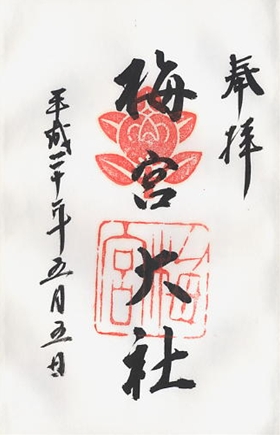 奉拝
梅宮大社
梅宮
平成二十年五月五日